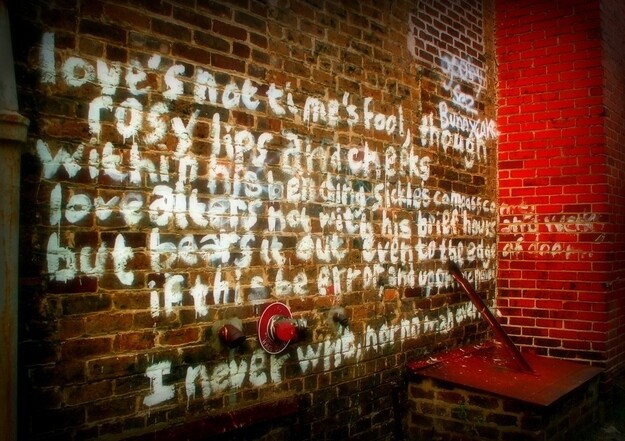 love's not time's fool, though
rosy lips and cheeks
within his bending sickles compass come
love alters not with his brief hours and weeks
but bears it out even to the edge of doom..
if this be error and upon me proved
I never writ, nor no man